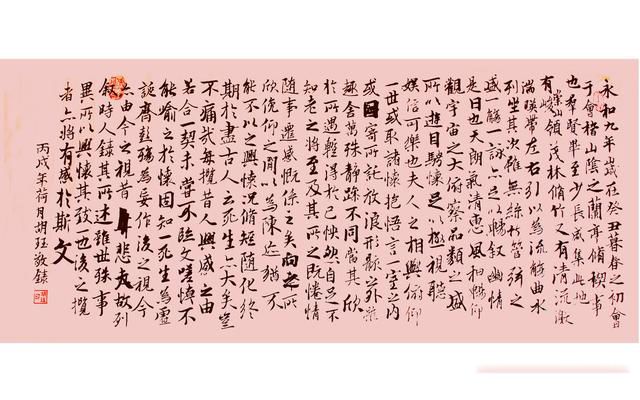 永和九年歲在癸丑暮春之初會
于會稽山陰之蘭亭脩稧事
也羣賢畢至少長咸集此地
有崇山峻領茂林脩竹又有清流激
湍暎帶左右引以為流觴曲水
列坐其次雖無絲竹管絃之
盛一觴一詠亦足以暢叙幽情
是日也天朗氣清惠風和暢仰
觀宇宙之大俯察品類之盛
所以遊目騁懷足以極視聽之
娛信可樂也夫人之相與俯仰
一世或取諸懷抱悟言一室之內
或因寄所託放浪形骸之外雖
趣舍萬殊靜躁不同當其欣
於所遇暫得於己怏然自足不
知老之將至及其所之既惓情
隨事遷感慨係之矣向之所
欣俛仰之間以為陳迹猶不
能不以之興懷況脩短隨化終
期於盡古人云死生亦大矣豈
不痛哉每攬昔人興感之由
若合一契未嘗不臨文嗟悼不
能喻之於懷固知一死生為虛
誕齊彭殤為妄作後之視今
亦由今之視昔悲夫故列
叙時人錄其所述雖世殊事
異所以興懷其致一也後之攬
者亦將有感於斯文
丙戌年荷月胡玨敬錄